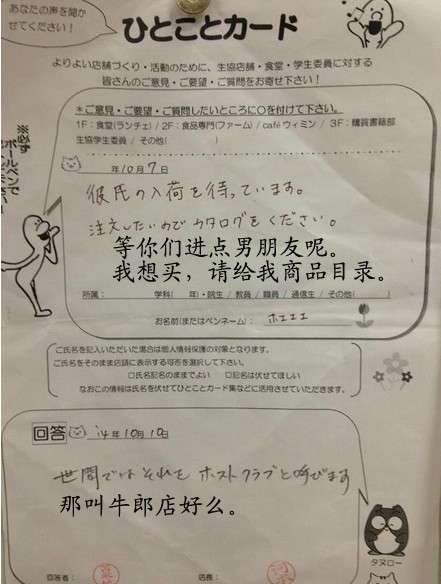 あなたの声を聞か
せてください!
ひとことカード
よりよい店舗づくり・活動のために、生協店舗・食堂・学生委員に対する
皆さんのご意見・ご要望・ご質問をお寄せ下さい!
*ご意見・ご要望・ご質問したいところに○を付けて下さい。
1F:食堂(ランチェ) / 2F:食品専門(ファーム) / caféウィミン / 3F:購買書籍部
生協学生委員 / その他( )
※必ず
ボールペンで
年10月7日
彼氏の入荷を待っています。
注文したいのでカタログをください。
等你们进点男朋友呢。
我想买，请给我商品目录。
所属: 学科( 年)・院生 / 教員 / 職員 / 通信生 / その他( )
お名前(またはペンネーム): ホエエエ
ご氏名を記入いただいた場合は個人情報保護の対象となります。
ご氏名をそのまま店舗に表示する可否を選択して下さい。
□氏名記名のままでよい □記名は伏せてほしい
なおこの情報は氏名を伏せてひとことカード集などに活用させていただきます。
回答 '14年10月10日
世間ではそれをホストクラブと呼びます
那叫牛郎店好么。
タヌロー
回答者: 店長: